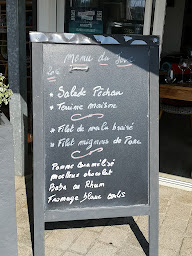 Menu du Jour
* Salade Pêchau
* Terrine maison
* Filet de
* Filet mignons de Porc
Pomme caramélisé
moelleux chocolat
Baba au Rhum
Fromage blanc coulis